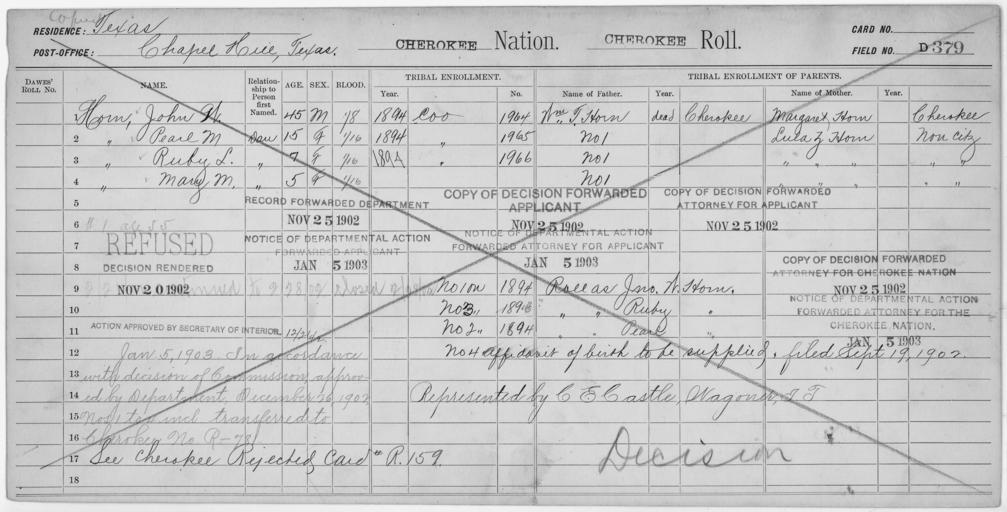 Copied
RESIDENCE: Texas
POST-OFFICE: Chapel Hill, Texas.
CHEROKEE Nation. CHEROKEE Roll.
CARD NO.
FIELD NO. D 379
DAWES' ROLL NO. NAME. Relationship to Person first Named. AGE. SEX. BLOOD. TRIBAL ENROLLMENT. Year. No. TRIBAL ENROLLMENT OF PARENTS. Name of Father. Year. Name of Mother. Year.
Horn, John W. 45 M 1/8 1894 Coo 1964 Wm T. Horn dead Cherokee Margaret Horn Cherokee
2 " Pearl M Dau 15 F 1/16 1894 " 1965 No1 Lula Z Horn Non citz
3 " Ruby L. " 7 F 1/16 1894 " 1966 No1 " " " " "
4 " Mary M. " 5 F 1/16 No1 " " " " "
5 RECORD FORWARDED DEPARTMENT COPY OF DECISION FORWARDED APPLICANT COPY OF DECISION FORWARDED ATTORNEY FOR APPLICANT
6 #1 age 55 NOV 25 1902 NOV 25 1902 NOV 25 1902
7 REFUSED NOTICE OF DEPARTMENTAL ACTION FORWARDED APPLICANT NOTICE OF DEPARTMENTAL ACTION FORWARDED ATTORNEY FOR APPLICANT
8 DECISION RENDERED JAN 5 1903 JAN 5 1903 COPY OF DECISION FORWARDED ATTORNEY FOR CHEROKEE NATION
9 NOV 20 1902 No 1 on 1894 Roll as Jno. W. Horn. NOV 25 1902
10 No 3 " 1894 " " Ruby " NOTICE OF DEPARTMENTAL ACTION FORWARDED ATTORNEY FOR THE CHEROKEE NATION.
11 ACTION APPROVED BY SECRETARY OF INTERIOR. No 2 " 1894 " " Pearl " JAN 5 1903
12 Jan 5, 1903. In accordance No 4 affidavit of birth to be supplied. filed Sept 19, 1902.
13 with decision of Commission approv-
14 ed by Department, December 26 1902 Represented by C E Castle, Wagoner, I T
15 Nos 1 to 4 incl. transferred to
16 Cherokee No R-
17 See Cherokee Rejected Card # R. 159. Decision
18